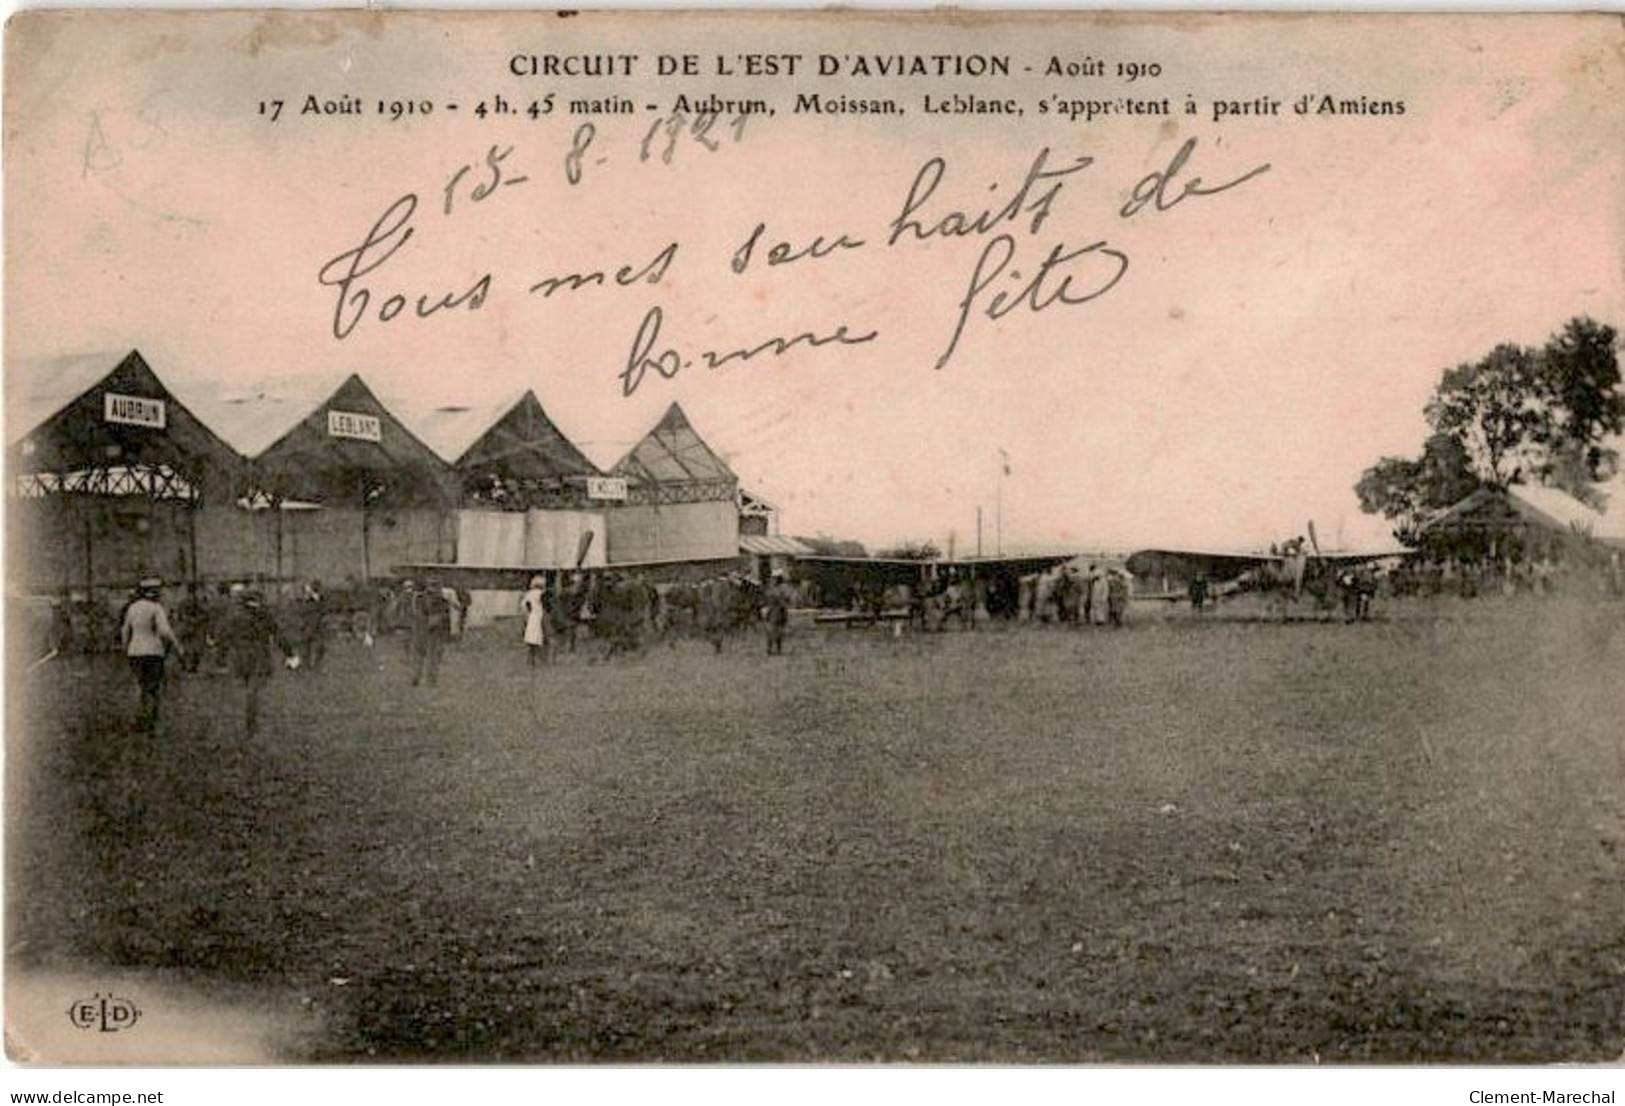 CIRCUIT DE L'EST D'AVIATION - Août 1910
17 Août 1910 - 4h. 45 matin - Aubrun, Moissan, Leblanc, s'apprêtent à partir d'Amiens
15-8-1921
Tous mes souhaits de
bonne fête
AUBRUN
LEBLANC
E·L·D
delcampe.net
Clement-Marechal